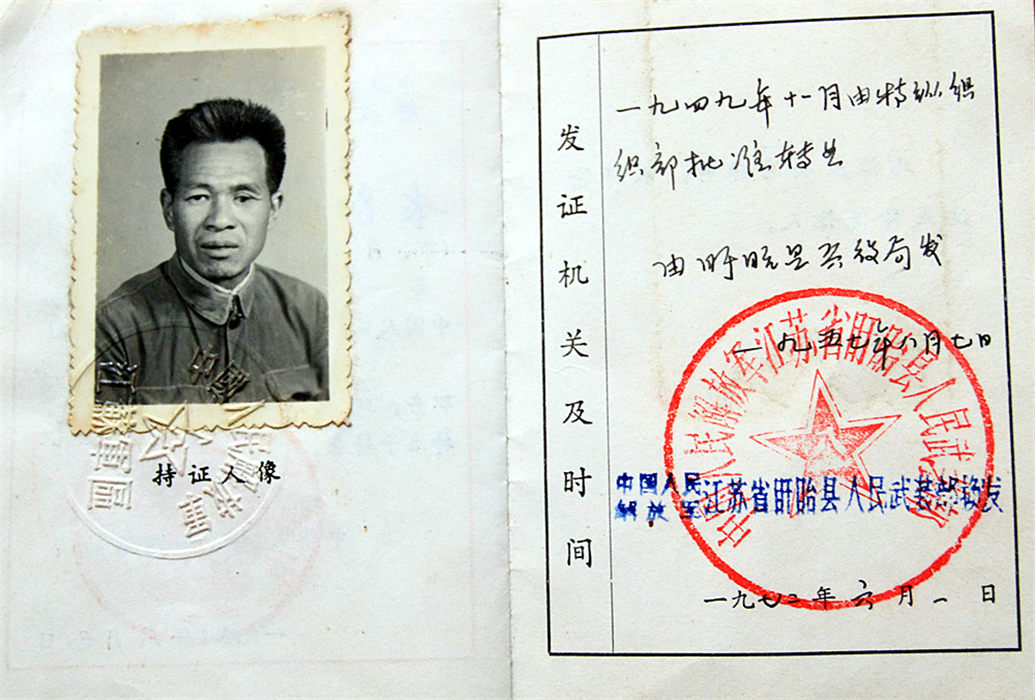 持证人像
发证机关及时间
一九四九年十一月由特纵组
织部批准转业
由盱眙县兵役局发
一九五七年八月七日
中国人民解放军江苏省盱眙县人民武装部
中国人民
解放军江苏省盱眙县人民武装部换发
一九七二年六月一日